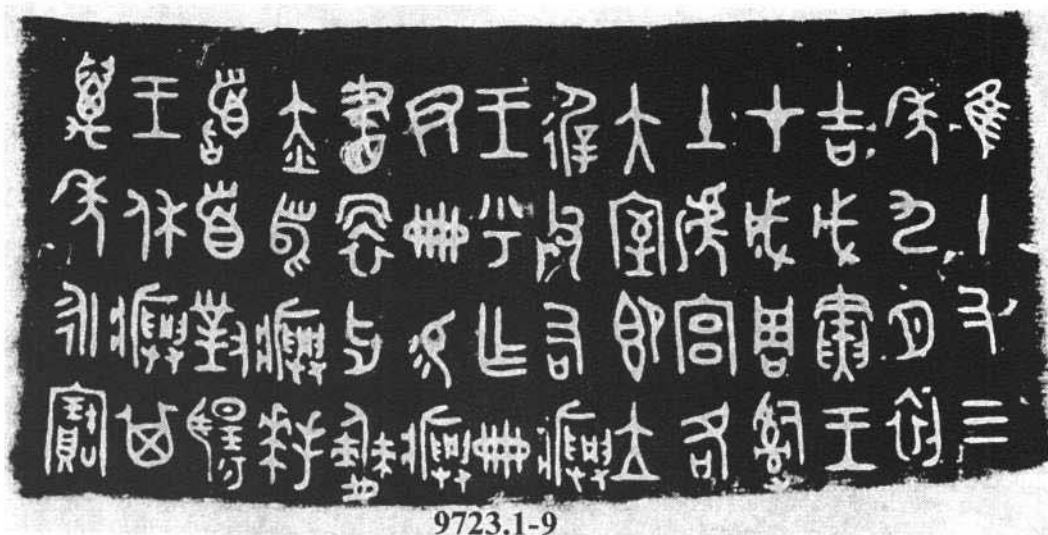 隹十又三
年九月初
吉戊寅王
才成周𤔲
土淲宮各
大室即立
徲父右𤼈
王乎乍冊
尹冊易𤼈
畫袗牙僰
赤舄𤼈拜
𩒨首對揚
王休𤼈其
萬年永寶
9723.1-9